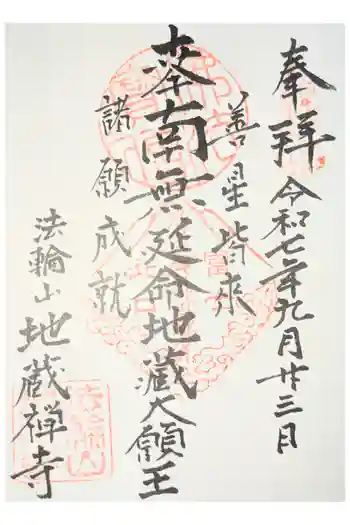 奉拝
令和七年九月廿三日
善星皆来
奉南無延命地蔵大願王
諸願成就
法輪山地蔵禅寺